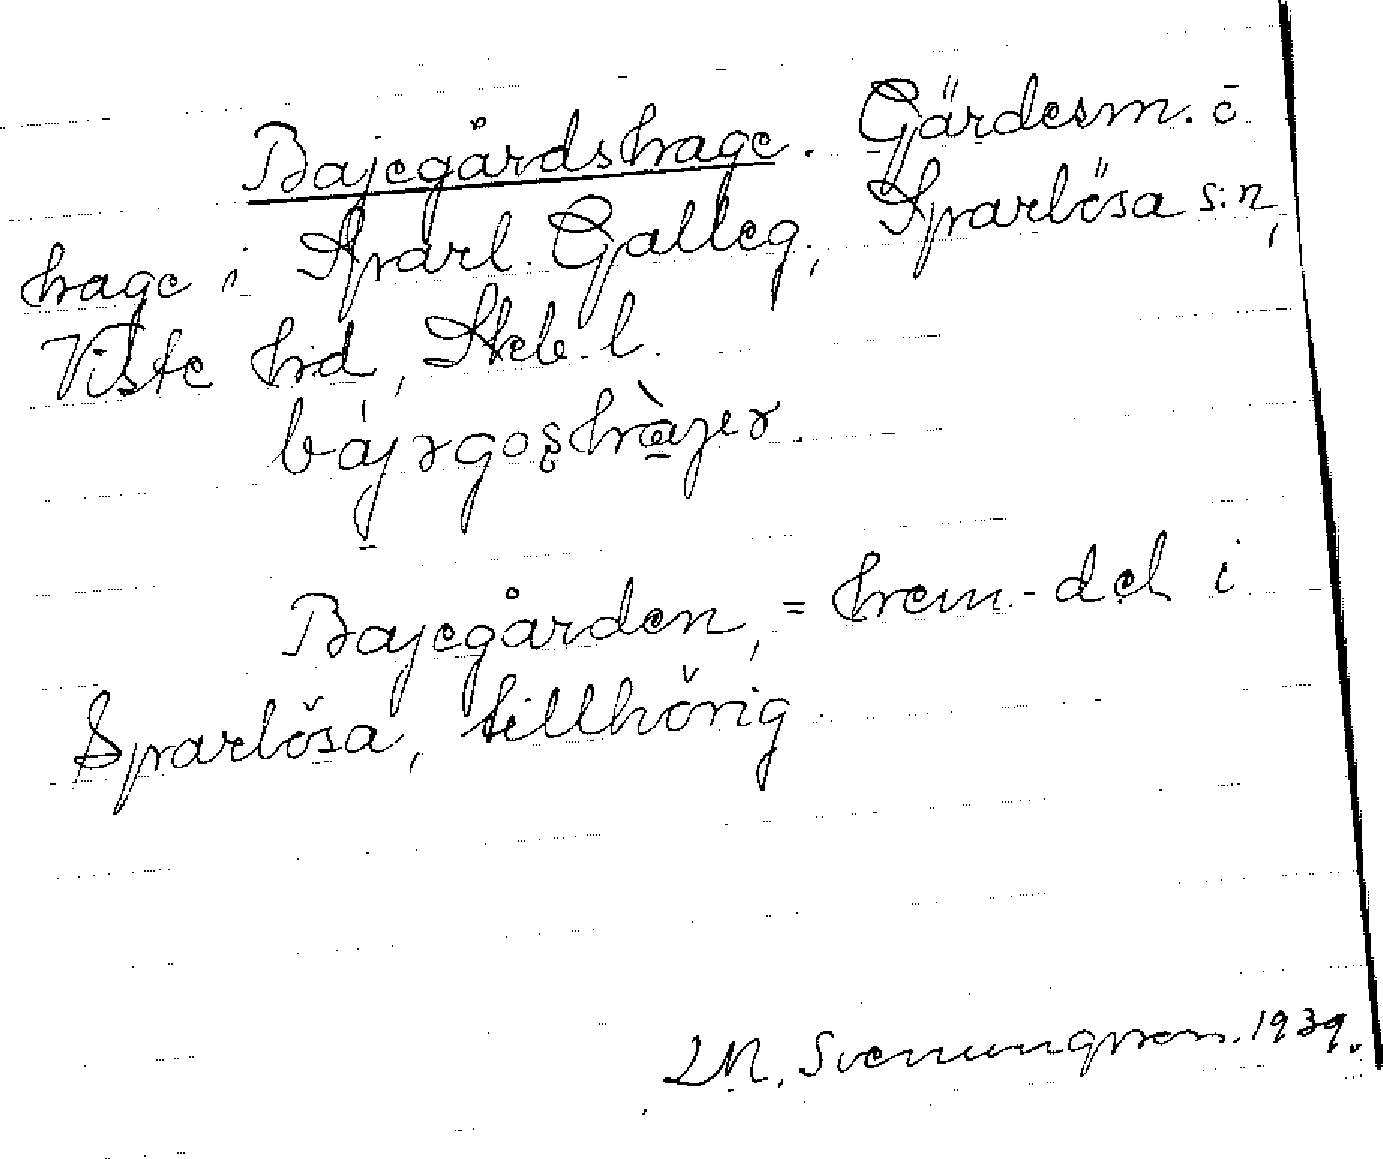 Bajegårdshage. Gärdesm. o.
hage i Sparl. Galleg., Sparlösa s:n,
Viste hd, Skb. l.
Bajegården, = hem.-del i
Sparlösa, tillhörig
L.M. Svenungsson. 1939.